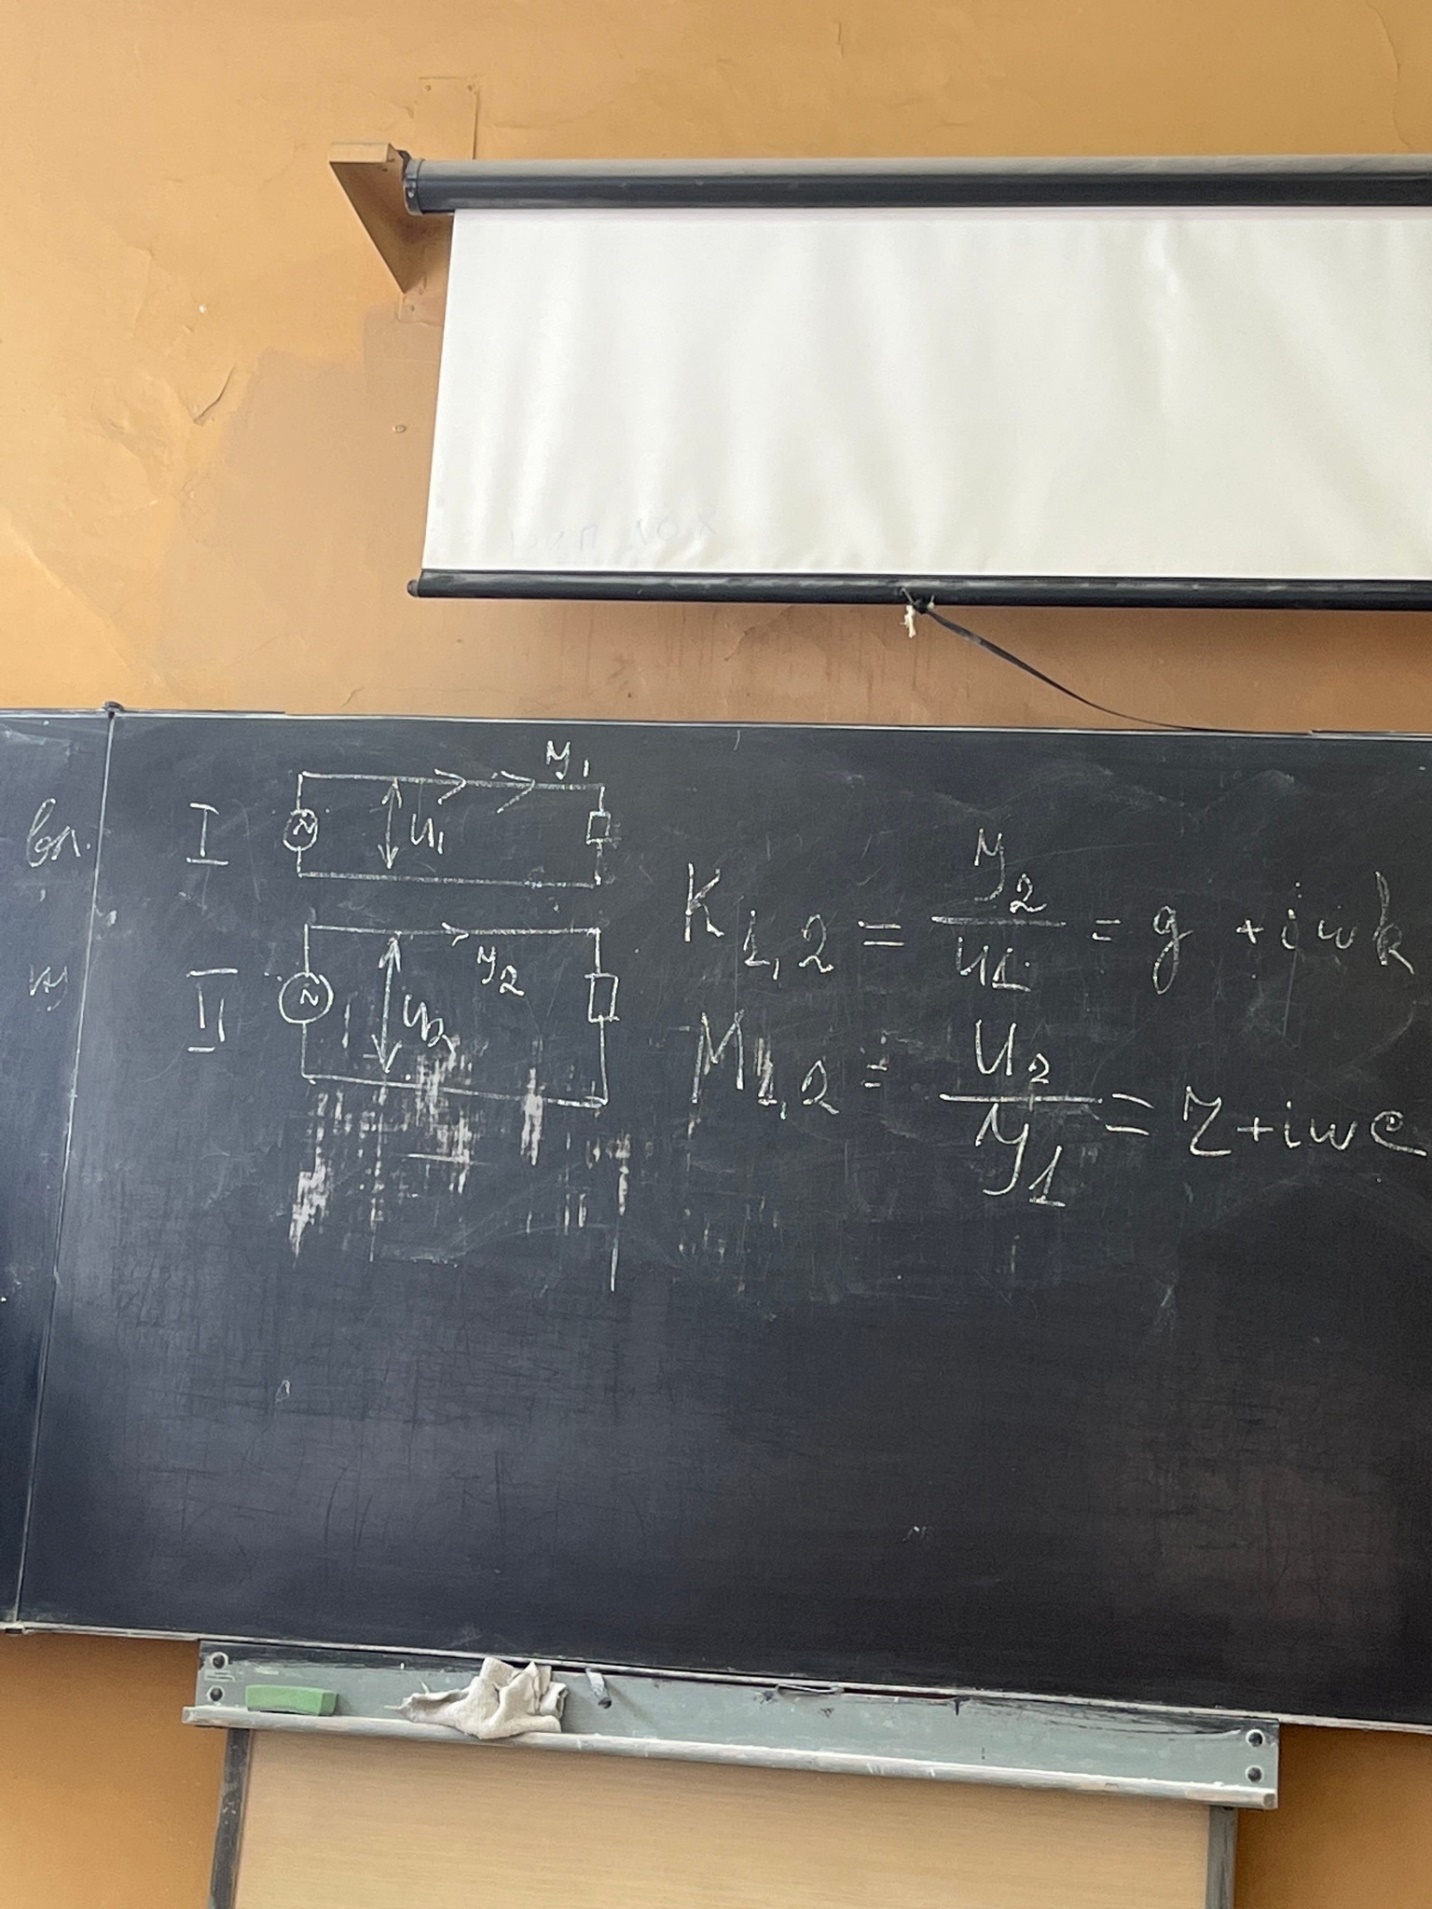 вл.
I
У₁
U₁
II
У₂
U₂
K₁,₂ = У₂/U₁ = g + iωk
M₁,₂ = U₂/У₁ = r + iωe